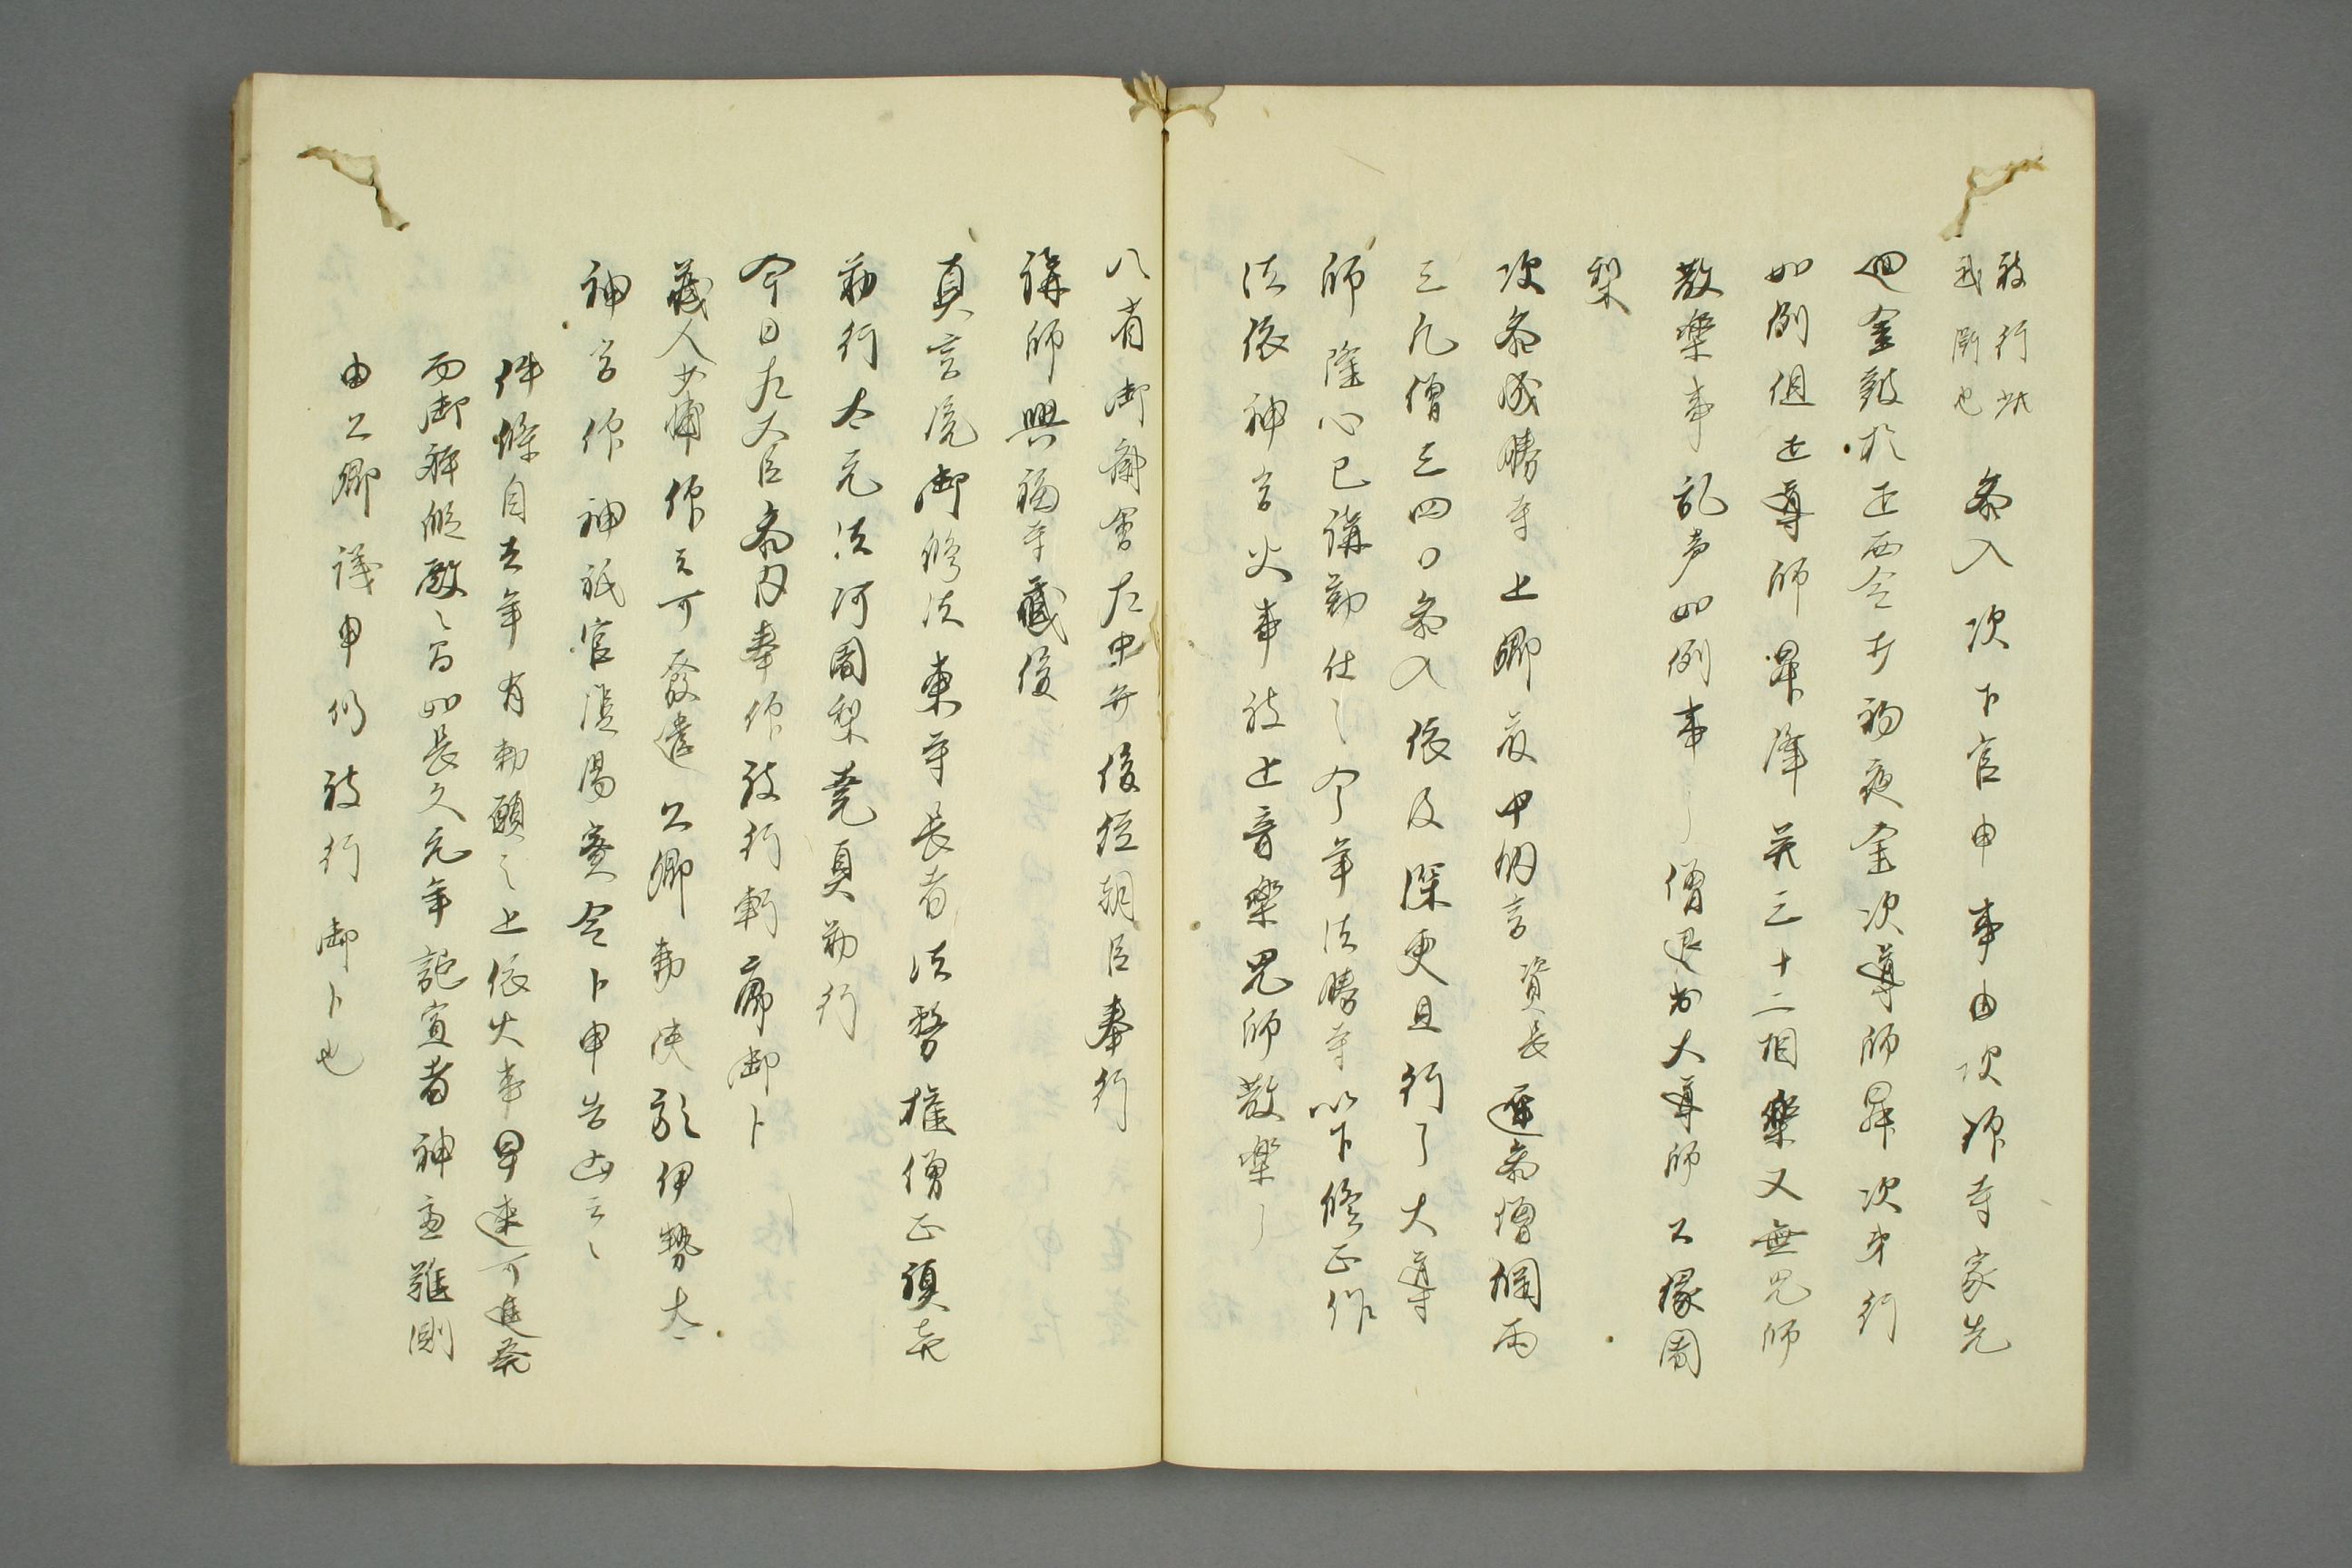 被行次
我所也 参入次下官申事由次仰寺家先
廻金鼓於正面令打初夜金次導師昇次第行
如例但止導師昇降并三十二相樂又無咒師
散樂事乱声如例事了僧退出大導師公縁闍
梨
次参成勝寺上卿藤中納言資長遅参僧綱両
三凡僧三四口参入依及深更且行了大導
師隆心已講勤仕之今年法勝寺以下修正作
法依神宮火事被止音樂咒師散樂了
八省御斎会左中弁俊経朝臣奉行
講師興福寺蔵俊
真言院御修法東寺長者法務権僧正禎喜
勤行太元法阿闍梨尭真勤行
今日左大臣参内奉仰被行軒廊御卜
蔵人少輔仰云可發遣公卿勅使於伊勢太
神宮作神祇官陰陽寮令卜申吉凶云々
件條自去年有勅願之上依火事早速可進発
而御躰假殿之間如長久元年託宣者神慮難測
由公卿議申仍被行御卜也